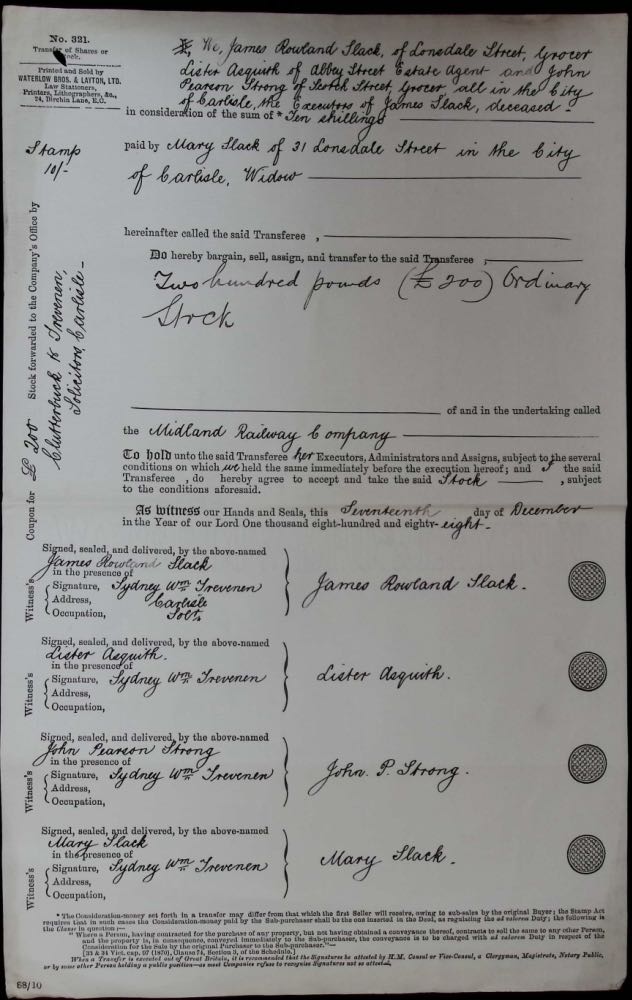 No. 321.
Transfer of Shares or
Stock.
Printed and Sold by
WATERLOW BROS. & LAYTON, LTD.
Law Stationers,
Printers, Lithographers, &c.,
24, Birchin Lane, E.C.
I, We, James Rowland Slack, of Lonsdale Street, Grocer
Lister Asquith of Abbey Street Estate Agent and John
Pearson Strong of Scotch Street, Grocer all in the City
of Carlisle, the Executors of James Slack, deceased -
in consideration of the sum of * Ten shillings
Stamp
10/-
paid by Mary Slack of 31 Lonsdale Street in the City
of Carlisle, Widow
hereinafter called the said Transferee ,
Do hereby bargain, sell, assign, and transfer to the said Transferee ,
Two hundred pounds (£200) Ordinary
Stock
Coupon for £ 200 Stock forwarded to the Company's Office by
Clutterbuck & Trevenen,
Solicitors, Carlisle -
of and in the undertaking called
the Midland Railway Company
To hold unto the said Transferee her Executors, Administrators and Assigns, subject to the several
conditions on which we held the same immediately before the execution hereof; and I the said
Transferee , do hereby agree to accept and take the said Stock , subject
to the conditions aforesaid.
As witness our Hands and Seals, this Seventeenth day of December
in the Year of our Lord One thousand eight-hundred and eighty-eight -
Signed, sealed, and delivered, by the above-named
James Rowland Slack
in the presence of
Witness's
Signature, Sydney Wm Trevenen
Address, Carlisle
Occupation, Solr.
James Rowland Slack.
Signed, sealed, and delivered, by the above-named
Lister Asquith.
in the presence of
Witness's
Signature, Sydney Wm Trevenen
Address,
Occupation,
Lister Asquith.
Signed, sealed, and delivered, by the above-named
John Pearson Strong
in the presence of
Witness's
Signature, Sydney Wm Trevenen
Address,
Occupation,
John. P. Strong.
Signed, sealed, and delivered, by the above-named
Mary Slack
in the presence of
Witness's
Signature, Sydney Wm Trevenen
Address,
Occupation,
Mary Slack.
* The Consideration-money set forth in a transfer may differ from that which the first Seller will receive, owing to sub-sales by the original Buyer; the Stamp Act
requires that in such cases the Consideration-money paid by the Sub-purchaser shall be the one inserted in the Deed, as regulating the ad valorem Duty; the following is
the Clause in question :—
"Where a Person, having contracted for the purchase of any property, but not having obtained a conveyance thereof, contracts to sell the same to any other Person,
and the property is, in consequence, conveyed immediately to the Sub-purchaser, the conveyance is to be charged with ad valorem Duty in respect of the
Consideration for the Sale by the original Purchaser to the Sub-purchaser."—
[33 & 34 Vict. cap. 97 (1870), Clause 74, Section 3, of the Schedule.]
When a Transfer is executed out of Great Britain, it is recommended that the Signatures be attested by H.M. Consul or Vice-Consul, a Clergyman, Magistrate, Notary Public,
or by some other Person holding a public position—as most Companies refuse to recognise Signatures not so attested.
88/10